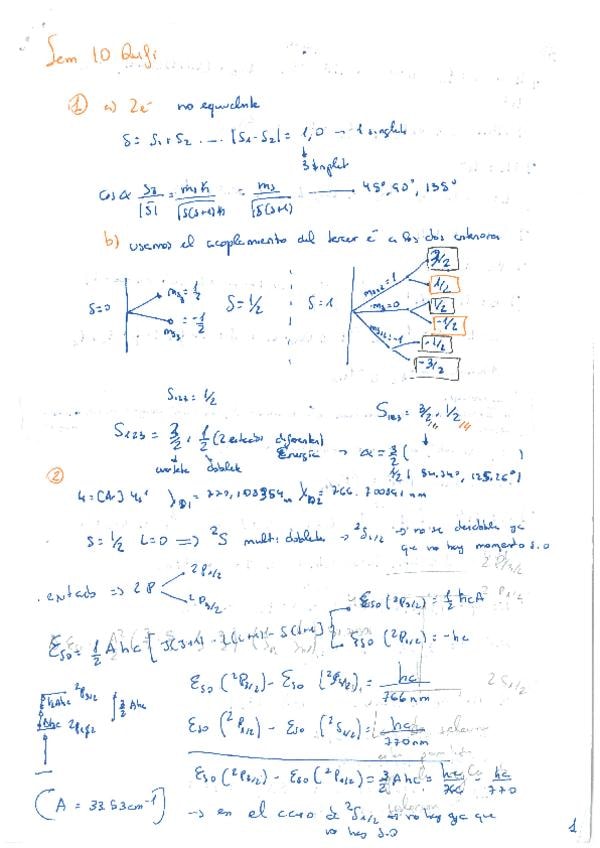 Sem 10 Quifi
① a) 2e⁻ no equivalente
S = S₁+S₂ ... |S₁-S₂| = 1, 0 → 1 singlete
↓
3 singlet
cos α = S₃/|S| = m₃ħ/√(S(S+1))ħ = m₃/√(S(S+1)) → 45°, 90°, 135°
b) usamos el acoplamiento del tercer e⁻ a los dos anteriores
3/2
m₁₂=1 1/2
m₃ = 1/2
S=0 S=1/2 S=1 m=0 1/2
m₃ = -1/2 -1/2
m₁₂=-1 -1/2
-3/2
S₁₂₃ = 1/2 S₁₂₃ = 3/2, 1/2
S₁₂₃ = 3/2, 1/2 (2 estados diferentes)
Energía → α = 3/2 (
cuartete doblete 1/2 ( 54.74°, 125.26°)
②
K = [Ar] 4s¹ λD1 = 770,108354 nm λD2 = 766.700891 nm
S = 1/2 L=0 ⇒ ²S mult: doblete → ²S₁/₂ → no se desdobla ya
que no hay momento S.O
exitado ⇒ 2P ²P₁/₂
²P₃/₂
Eso(²P₃/₂) = 1/2 hcA
Eso = 1/2 A hc [J(J+1) - L(L+1) - S(S+1)]
Eso(²P₁/₂) = -hc
Eso(²P₃/₂) - Eso(²S₁/₂) = hc/766nm
1/2Ahc ²P₃/₂ 3/2 Ahc
Ahc ²P₁/₂
Eso(²P₁/₂) - Eso(²S₁/₂) = hc/770nm
Eso(²P₃/₂) - Eso(²P₁/₂) = 3/2 Ahc = hc/766 - hc/770
(A = 33.53cm⁻¹) → en el caso de ²S₁/₂ → no hay ya que
no hay S.O
1